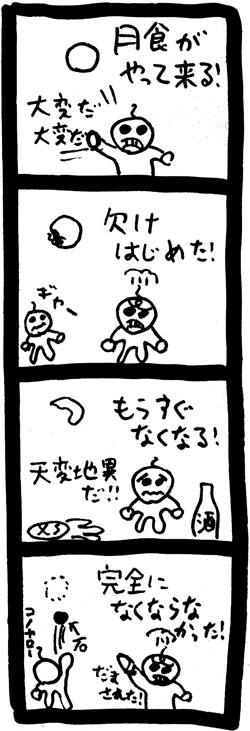 月食が
やって来る!
大変だ
大変だ
欠け
はじめた!
ギャー
もうすぐ
なくなる!
天変地異
だ!!
酒
完全に
なくならな
かった!
石
コノヤロー
だま
された!